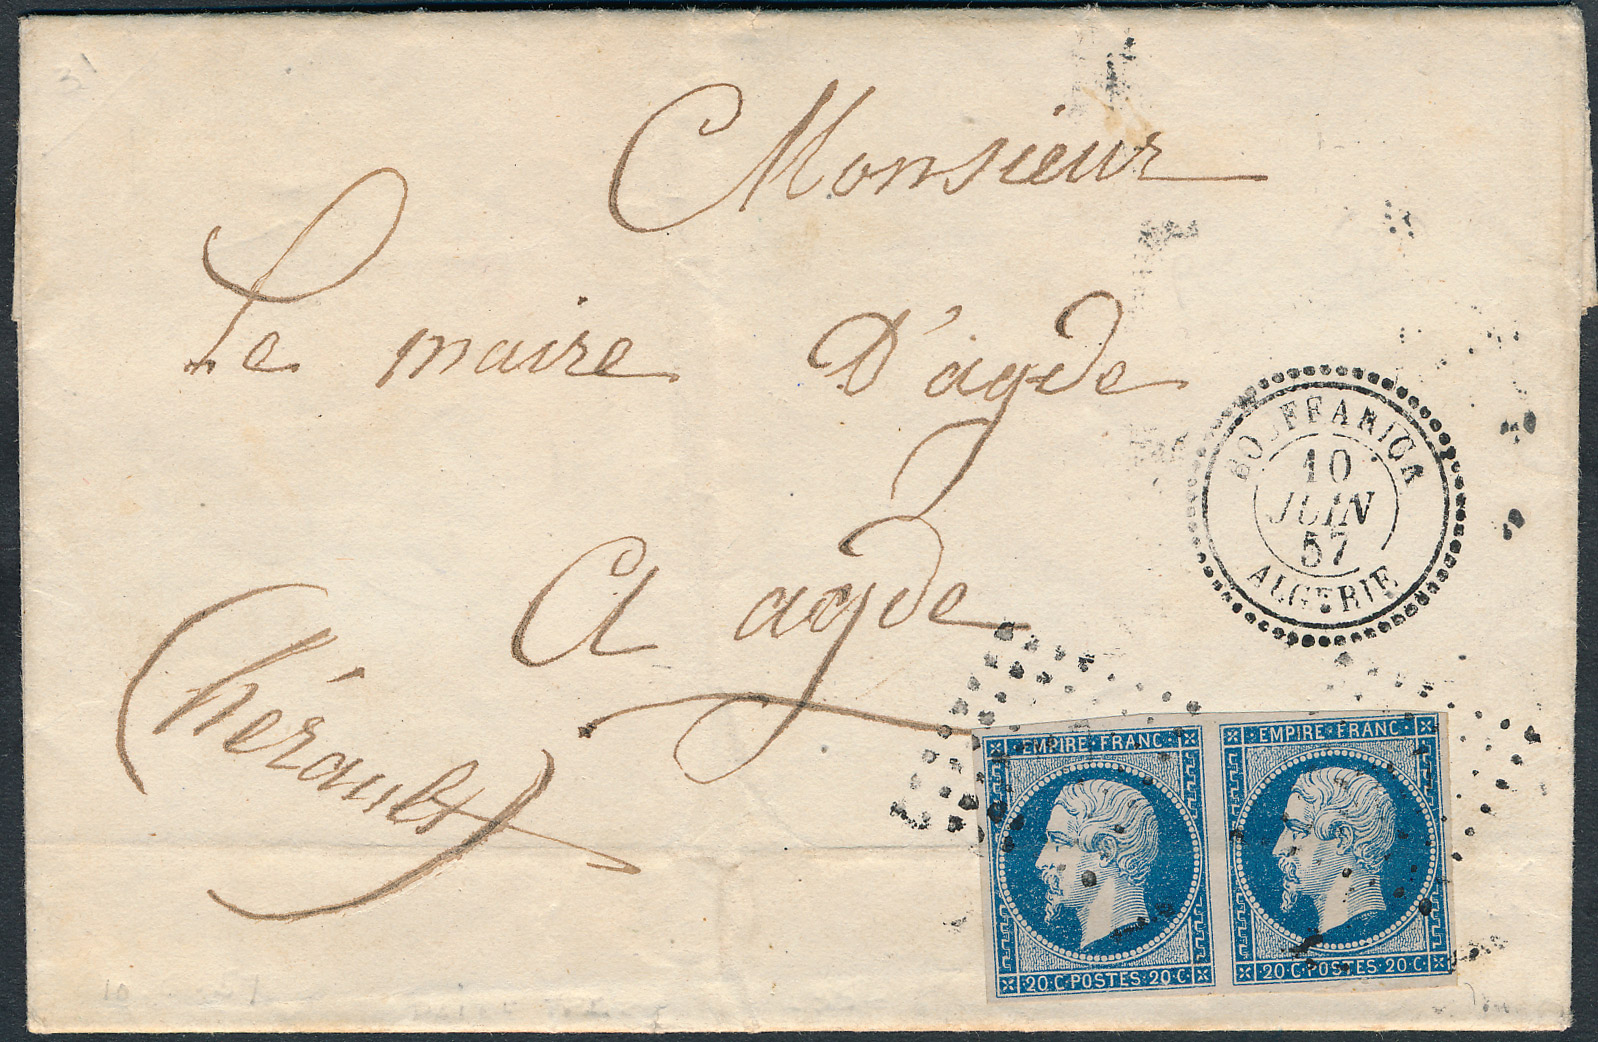 31
Monsieur
Le maire D'agde
BOUFFARICK
10
JUIN
57
ALGERIE
A agde
(hérault)
EMPIRE·FRANC· EMPIRE·FRANC·
20·C·POSTES·20·C· 20·C·POSTES·20·C·
10